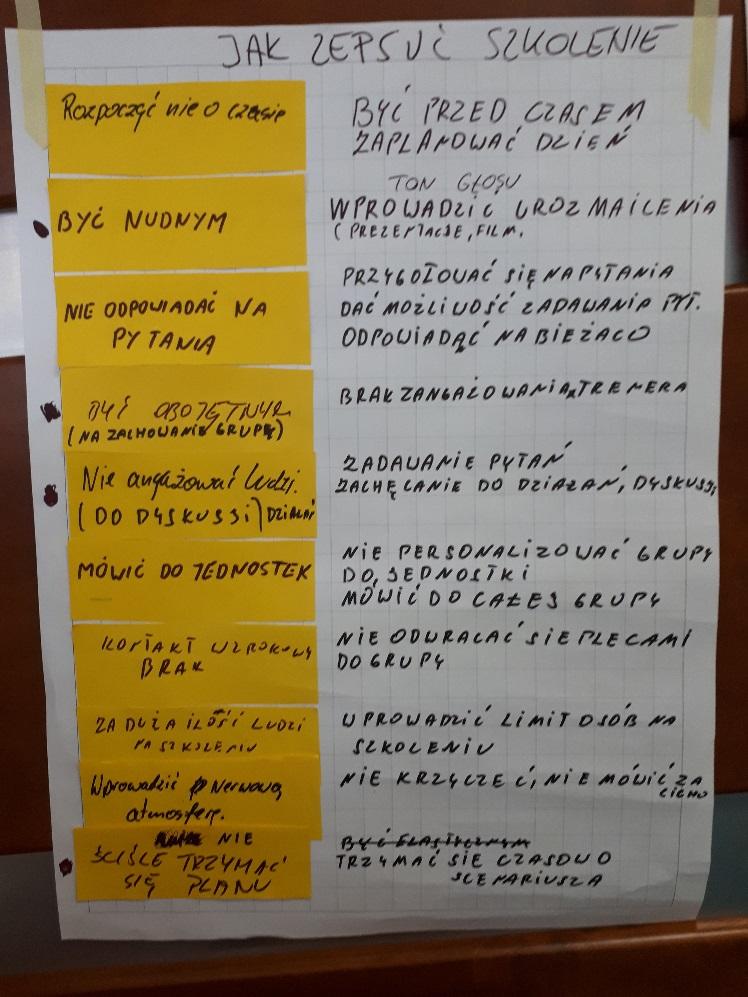 JAK ZEPSUĆ SZKOLENIE
Rozpocząć nie o czasie
BYĆ PRZED CZASEM
ZAPLANOWAĆ DZIEŃ
BYĆ NUDNYM
TON GŁOSU
WPROWADZIĆ UROZMAICENIA
(PREZENTACJE, FILM.
NIE ODPOWIADAĆ NA
PYTANIA
PRZYGOTOWAĆ SIĘ NA PYTANIA
DAĆ MOŻLIWOŚĆ ZADAWANIA PYT.
ODPOWIADAĆ NA BIEŻACO
BYĆ OBOJĘTNYM
(NA ZACHOWANIE GRUPY)
BRAK ZANGAŻOWANIA TRENERA
Nie angażować ludzi.
(DO DYSKUSSI) DZIAŁAŃ
ZADAWANIE PYTAŃ
ZACHĘCANIE DO DZIAŁAŃ, DYSKUSJI
MÓWIĆ DO JEDNOSTEK
NIE PERSONALIZOWAĆ GRUPY
DO JEDNOSTKI
MÓWIĆ DO CAŁEJ GRUPY
KONTAKT WZROKOWY
BRAK
NIE ODWRACAĆ SIE PLECAMI
DO GRUPY
ZA DUŻA ILOŚĆ LUDZI
NA SZKOLENIU
WPROWADZIĆ LIMIT OSÓB NA
SZKOLENIU
Wprowadzić Nerwową
atmosferę.
NIE KRZYCZEĆ, NIE MÓWIĆ ZA
CICHO
NIE
ŚCIŚLE TRZYMAĆ
SIĘ PLANU
BYĆ ELASTYCZNYM
TRZYMAĆ SIE CZASOWO
SCENARIUSZA